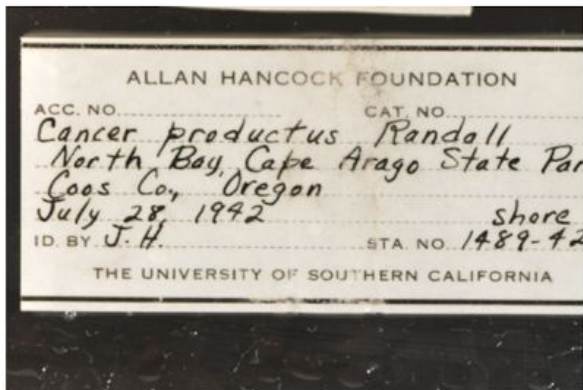 ALLAN HANCOCK FOUNDATION
ACC. NO. CAT. NO.
Cancer productus Randall
North Bay, Cape Arago State Par
Coos Co., Oregon
July 28, 1942 shore
ID. BY J. H. STA. NO. 1489-42
THE UNIVERSITY OF SOUTHERN CALIFORNIA